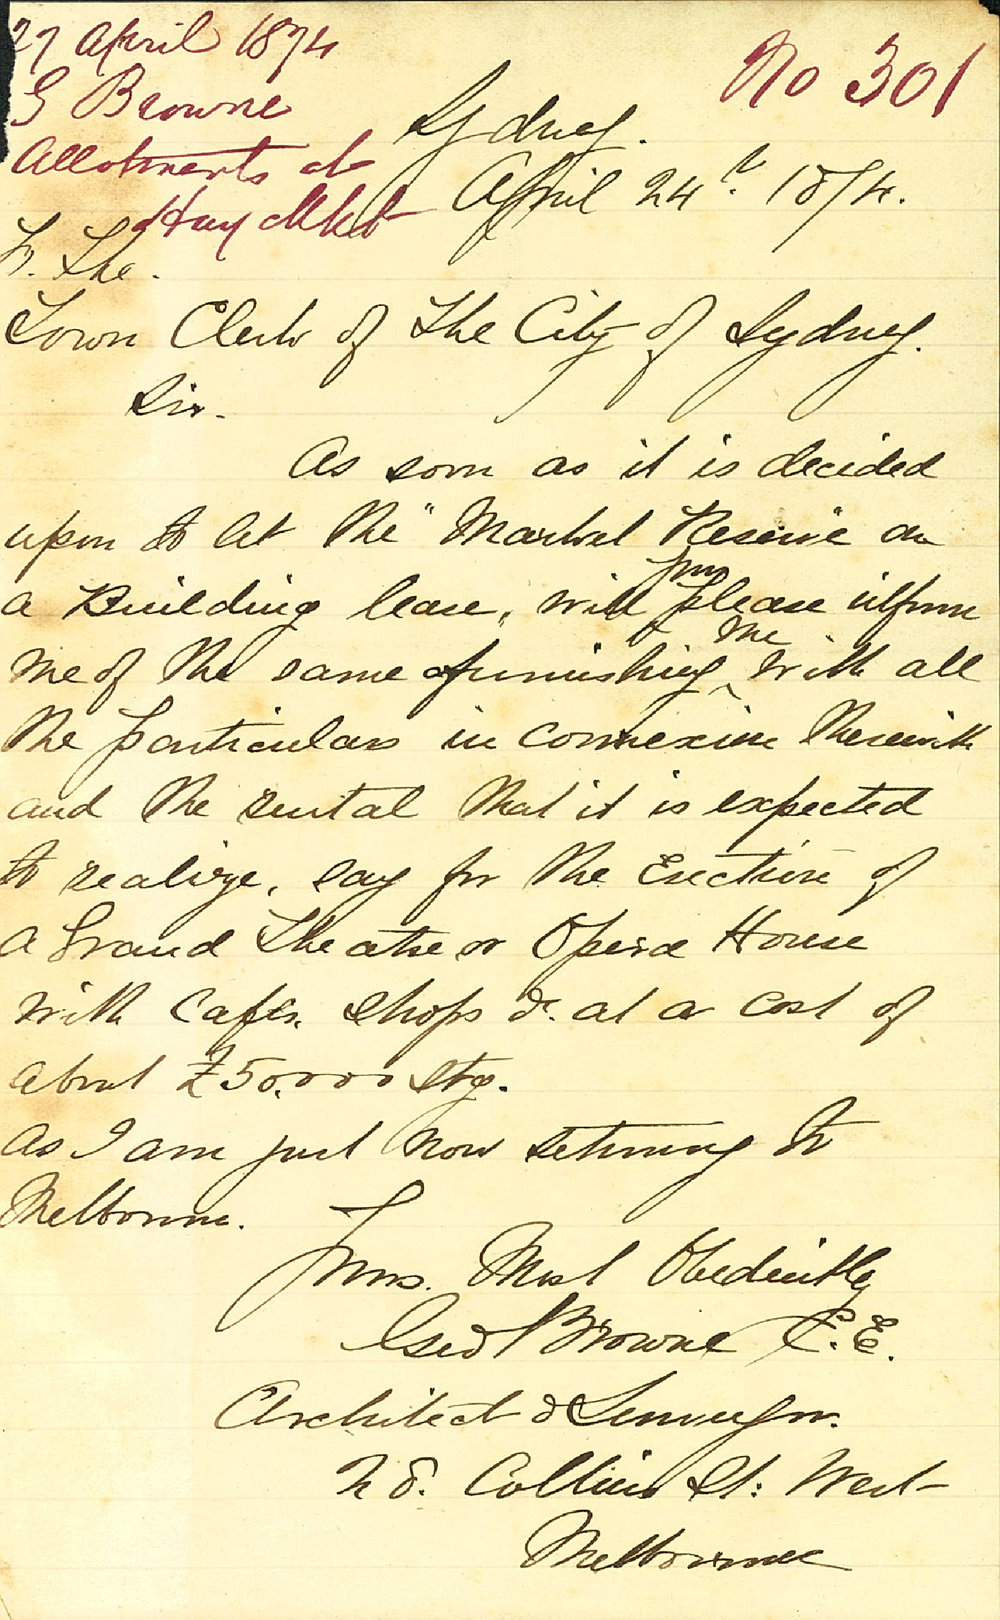 27 April 1874
G Browne
Allotments at
Hay Mkt
No 301
Sydney.
April 24th. 1874.
To. The.
Town Clerk of The City of Sydney.
Sir.
As soon as it is decided
upon to let the "Market Reserve" on
a Building lease, will you please inform
me of the same furnishing me with all
the particulars in connexion therewith
and the rental that it is expected
to realize, say for the Erection of
a Grand Theatre or Opera House
with Cafés. Shops &c. at a cost of
about £50.000 Stg.
As I am just now returning to
Melbourne.
Yours. Most Obediently
Geo Browne C.E.
Architect & Surveyor.
Collins St: West
Melbourne